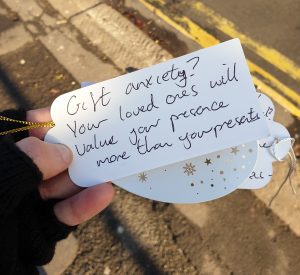 Gift anxiety?
Your loved ones will
value your presence
more than your presents
as-